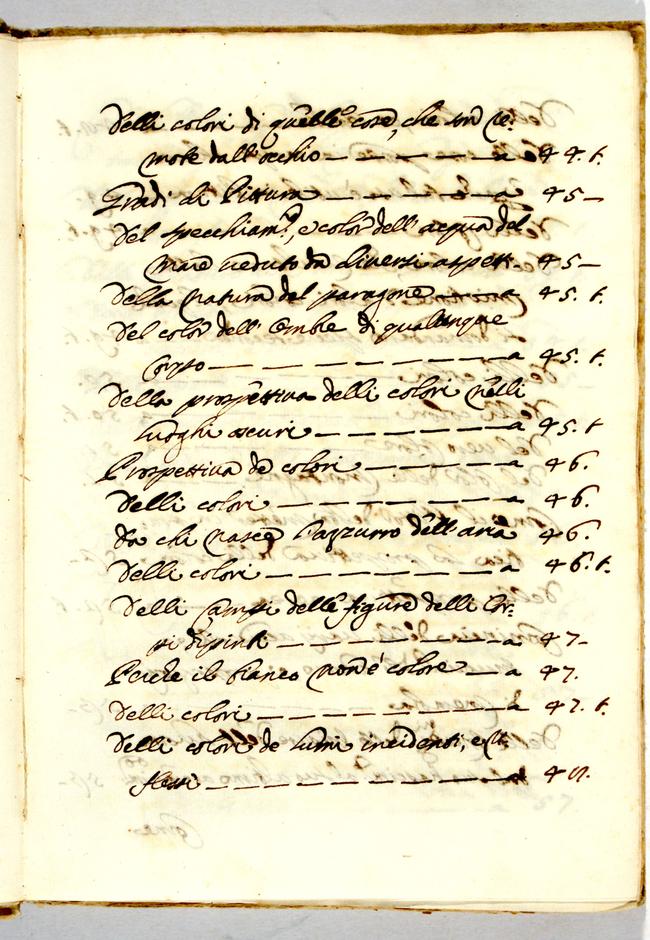 Delli colori di quelle cose, che son re-
mote dall'occhio — — — — — a 44. t.
Gradi di Pittura — — — — — a 45 —
Del specchiam.to, e color dell'acqua del
mare veduto da diversi aspett. 45 —
Della natura del paragone — — 45. t.
Del color dell'ombre di qualunque
Corpo — — — — — — — a 45. t.
Della prospettiva delli colori nelli
luoghi oscuri — — — — — a 45. t
Prospettiva de colori — — — — a 46.
Delli colori — — — — — — a 46.
Da chi nasce l'azzurro dell'aria 46.
Delli colori — — — — — — a 46. t.
Delli campi delle figure delli Cor-
pi dipinti — — — — — — a 47 —
Perche il bianco non è colore — a 47.
Delli colori — — — — — — a 47. t.
Delli colori de lumi incidenti, e re-
flessi — — — — — — — a
Come